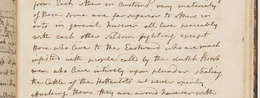 from Each other in Customs, very materially
of them some are far superior to others in
arts in general however all live peaceably
with each other seldom fighting except
those who live to the Eastward who are much
with people calld by the dutch Bosch
men who live intirely upon plunder Stealing
the Cattle of the Hottentots at never openly
attacking them they are armd however with